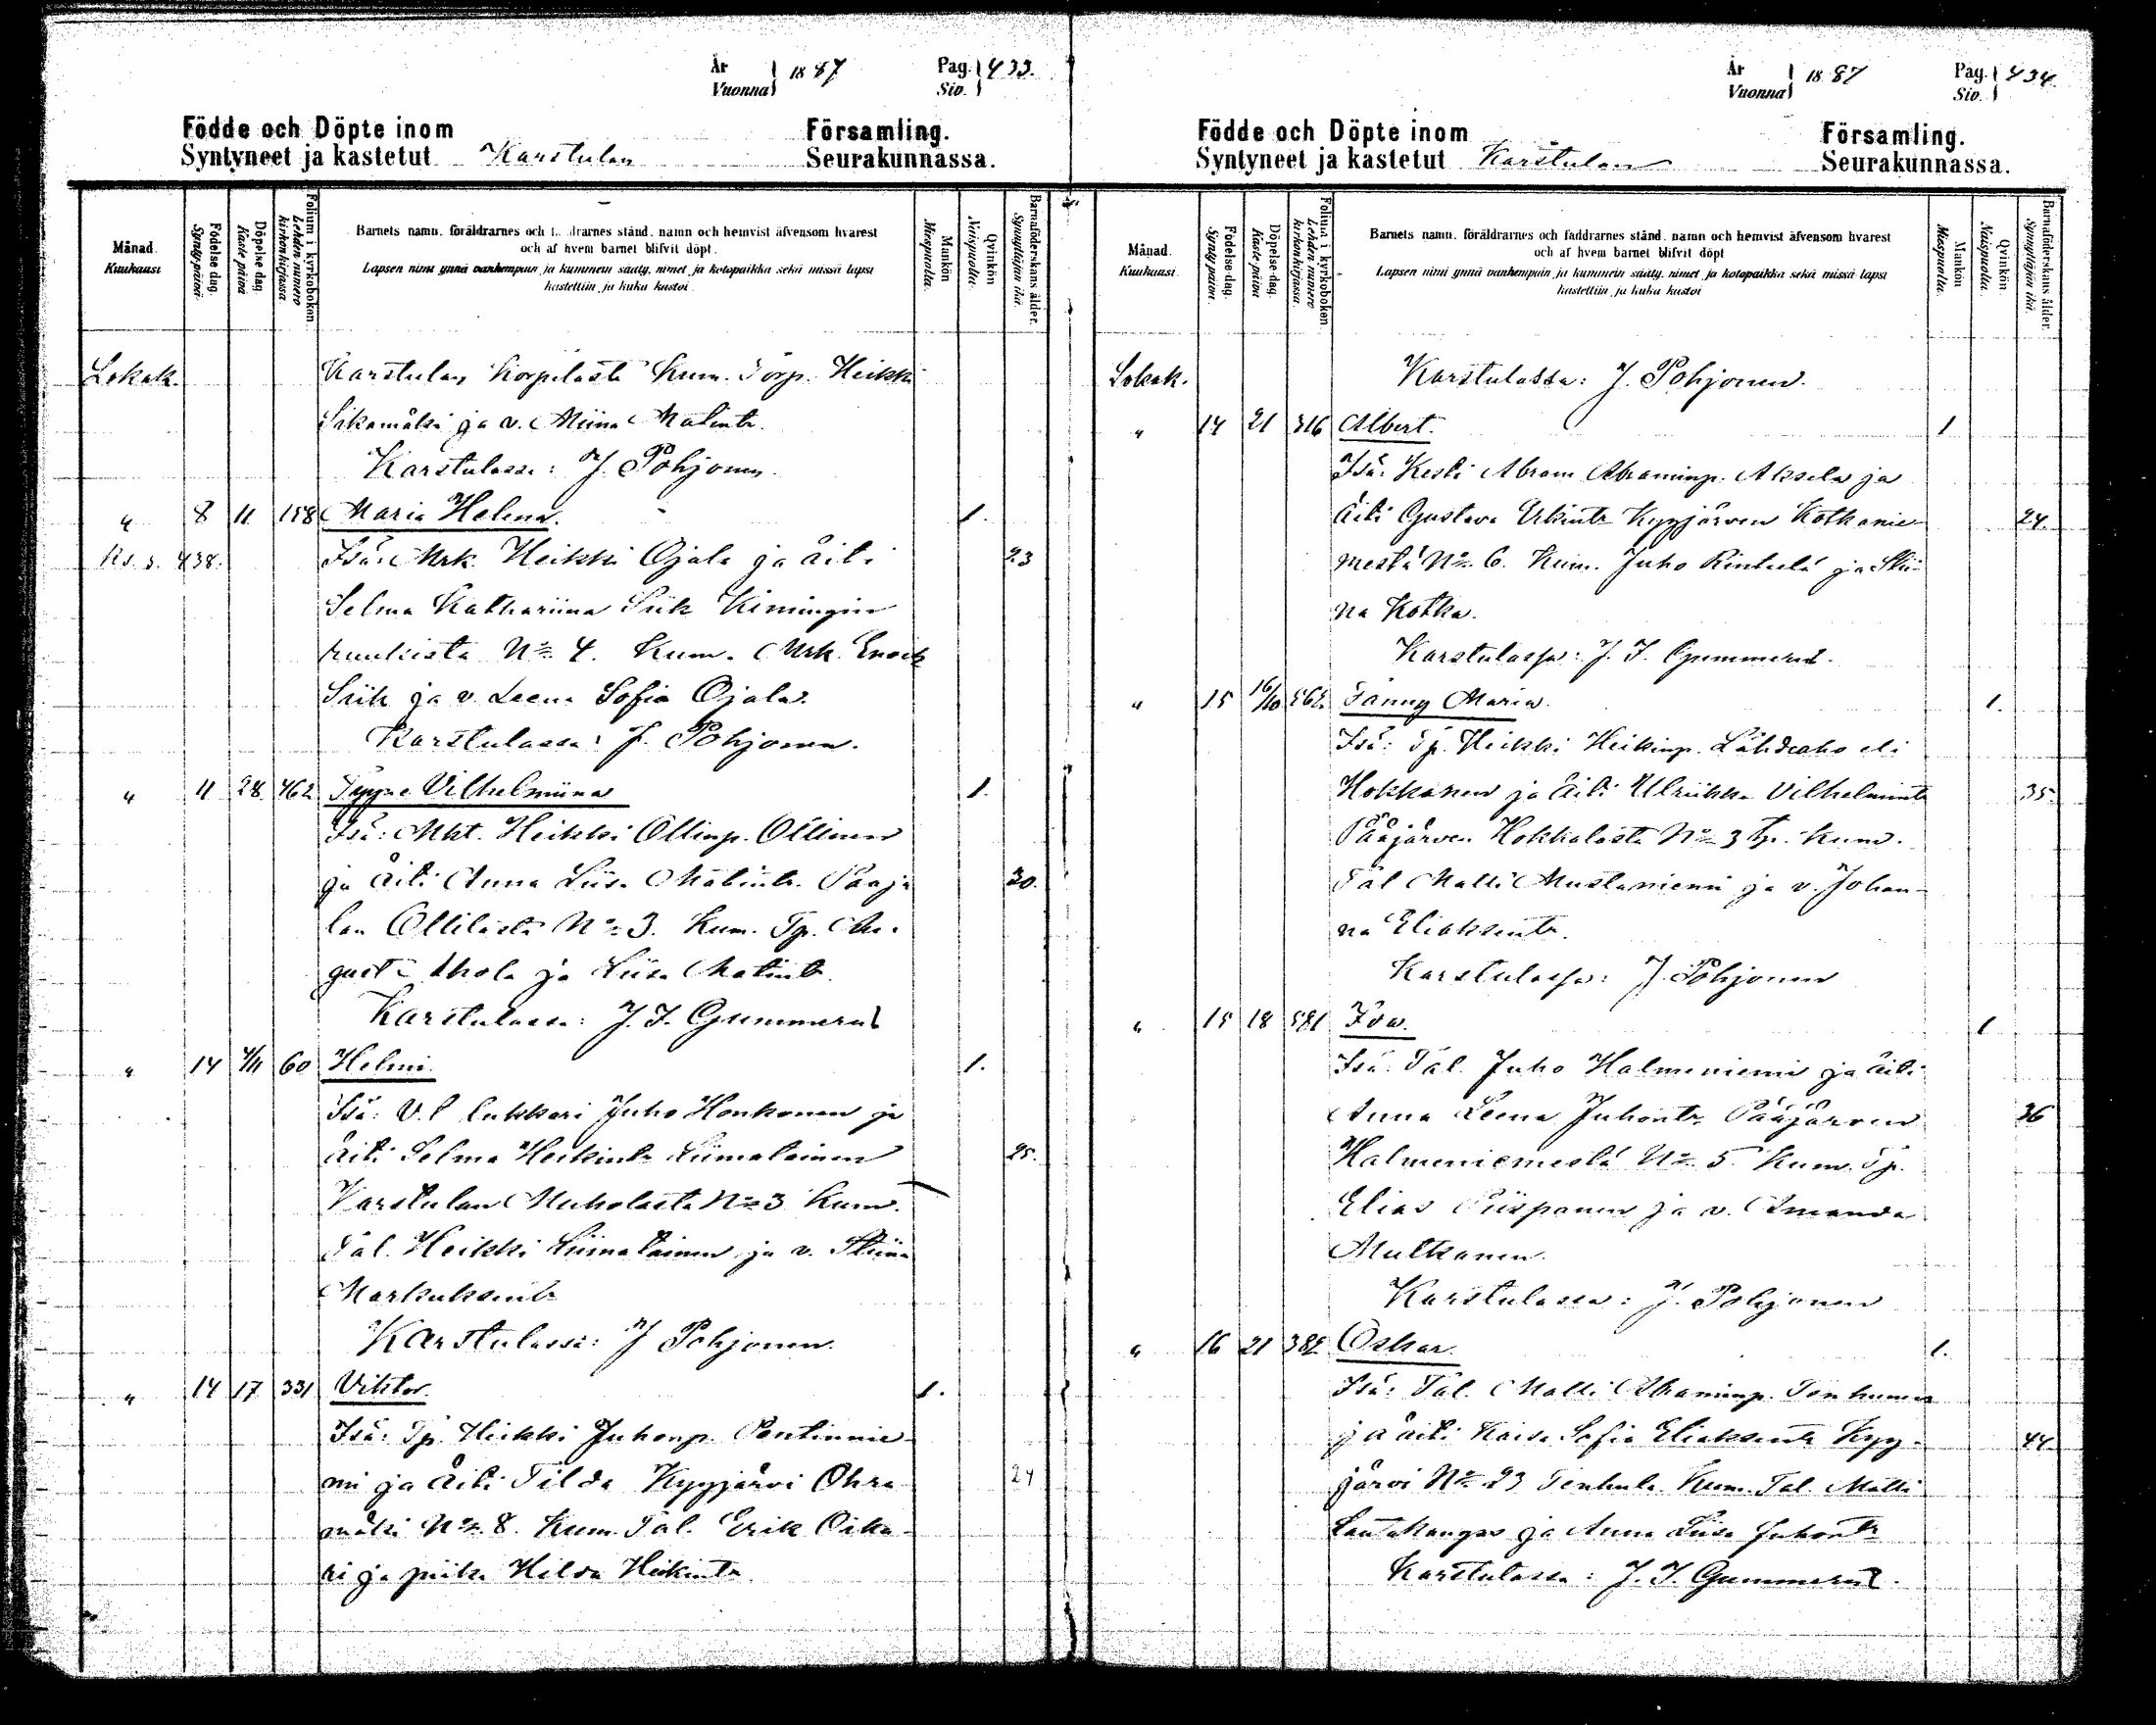 År
Vuonna } 1887
Pag.
Siv. } 433.
Födde och Döpte inom Församling.
Syntyneet ja kastetut Karstulan Seurakunnassa.
Månad.
Kuukausi
Födelse dag.
Synty-päivä.
Döpelse dag
Kaste päivä
Folium i kyrkoboken
Lehden numero
kirkonkirjassa
Barnets namn, föräldrarnes och f.. drarnes stånd, namn och hemvist äfvensom hvarest
och af hvem barnet blifvit döpt.
Lapsen nimi ynnä vanhempain ja kummein sääty, nimet ja kotopaikka sekä missä lapsi
kastettiin ja kuka kastoi
Mankön
Miespuolta.
Qvinkön
Naispuolta.
Barnaföderskans ålder.
Synnyttäjän ikä.
Lokak. Karstulan Korpilasta Kum. Torp. Heikki
Sikamäki ja v. Miina Matintr.
Karstulassa: J. Pohjonen.
" 8 11 158 Maria Helena. 1.
Ks. s. 438. Isä: Mrk. Heikki Ojala ja äiti 23
Selma Kathariina Siik Kimingin
ruukista No 4. Kum. Mrk. Enock
Siik ja v. Leena Sofia Ojala.
Karstulassa: J. Pohjonen.
" 11 28 462 Tyyne Vilhelmiina 1.
Isä: Mkt. Heikki Ollinp. Ollinen
ja äiti Anna Liisa Matintr. Pääjä 30.
lan Ollilasta No 3. Kum. Tp. Au-
gust Ahola ja Liisa Matintr.
Karstulassa: J. F. Gummerus
" 14 4/11 60 Helmi. 1.
Isä: V.t. lukkari Juho Honkonen ja
äiti Selma Heikintr. Liimatainen 25.
Karstulan Muholasta No 3 Kum.
Tal. Heikki Liimatainen ja v. Stiina
Markuksentr
Karstulassa: J Pohjonen.
" 14 17 331 Viktor. 1.
Isä: Tp. Heikki Juhonp. Pentinnie-
mi ja äiti Tilda Kyyjärvi Ohra- 24
mäki No 8. Kum. Tal. Erik Oika-
ri ja piika Hilda Heikintr.
År
Vuonna } 1887
Pag.
Siv. } 434.
Födde och Döpte inom Församling.
Syntyneet ja kastetut Karstulan Seurakunnassa.
Månad.
Kuukausi.
Födelse-dag.
Synty päivä.
Döpelse-dag.
Kaste-päivä
Folium i kyrkoboken
Lehden numero
kirkonkirjassa.
Barnets namn, föräldrarnes och faddrarnes stånd, namn och hemvist äfvensom hvarest
och af hvem barnet blifvit döpt
Lapsen nimi ynnä vanhempain ja kummein sääty, nimet ja kotopaikka sekä missä lapsi
kastettiin ja kuka kastoi
Mankön
Miespuolta.
Qvinkön
Naispuolta.
Barnaföderskans ålder.
Synnyttäjän ikä.
Lokak. Karstulassa: J. Pohjonen.
" 14 21 316 Albert. 1
Isä: Kesti Abram Abraminp. Aksela ja
äiti Gustava Erkintr. Kyyjärven Kotkanie- 24.
mestä No 6. Kum. Juho Rintelä ja Stii-
na Kotka.
Karstulassa: J. F. Gummerus.
" 15 16/10 562. Fanny Maria. 1.
Isä: Tp. Heikki Heikinp. Lähdeaho eli
Hokkanen ja äiti Ulriikka Vilhelmintr 35.
Pääjärven Hokkalasta No 3 tp. Kum.
Tal Matti Mustaniemi ja v. Johan-
na Eliaksentr.
Karstulassa: J. Pohjonen
" 15 18 581 Ida. 1
Isä: Tal. Juho Halmeniemi ja äiti
Anna Leena Juhontr. Pääjärven 36
Halmeniemestä No 5. Kum. Tp.
Elias Piispanen ja v. Amanda
Multanen.
Karstulassa: J. Pohjonen
" 16 21 382 Oskar. 1.
Isä: Tal. Matti Abraminp. Tenhunen
ja äiti Kaisa Sofia Eliaksentr Kyy- 44.
järvi No 23 Tenhula. Kum. Tal. Matti
Lautakangas ja Anna Liisa Juhontr
Karstulassa: J. F. Gummerus.